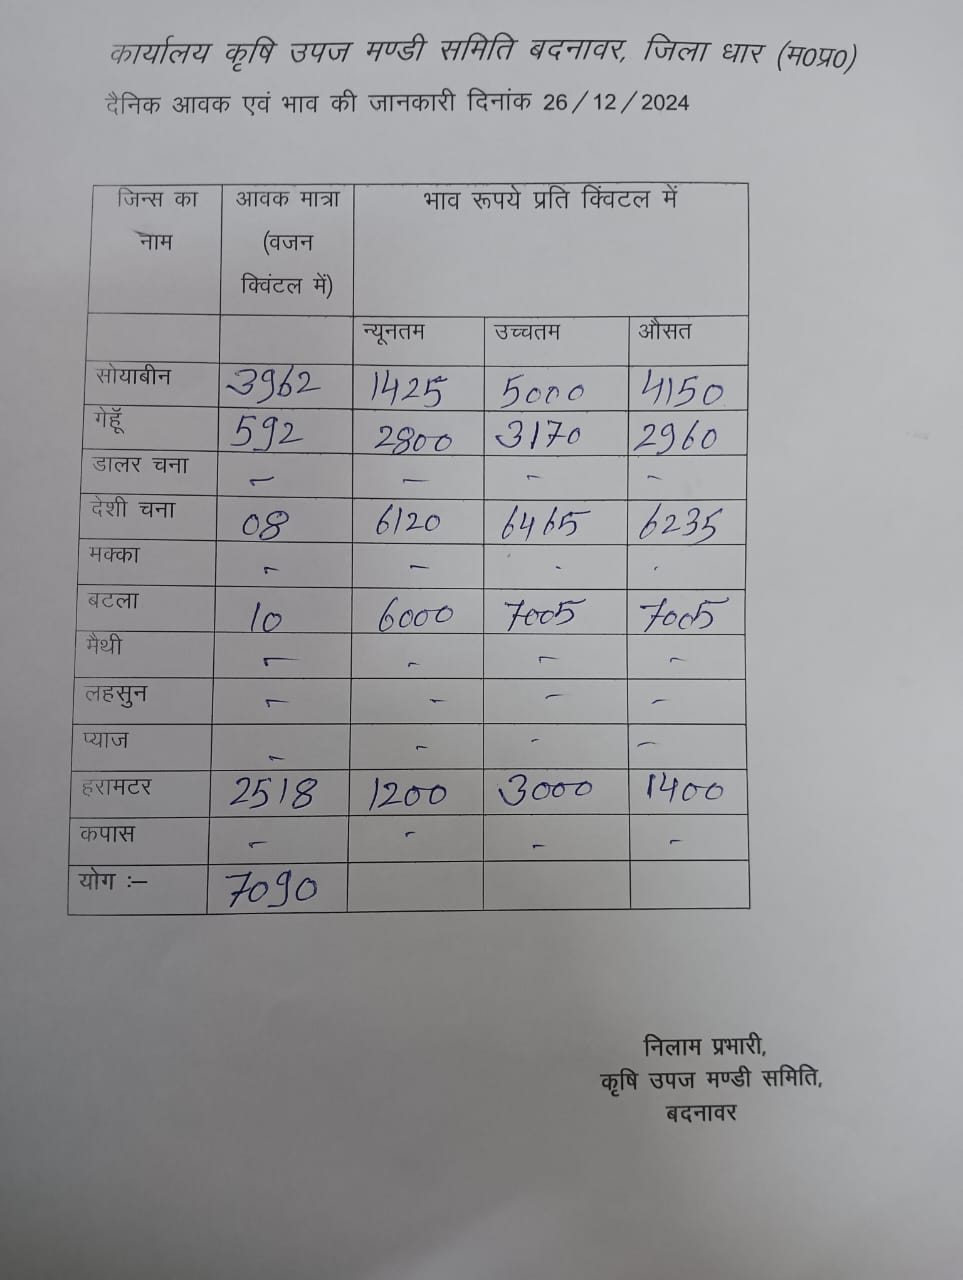 कार्यालय कृषि उपज मण्डी समिति बदनावर, जिला धार (म0प्र0)
दैनिक आवक एवं भाव की जानकारी दिनांक 26/12/2024
जिन्स का नाम आवक मात्रा (वजन क्विंटल में) भाव रूपये प्रति क्विंटल में
न्यूनतम उच्चतम औसत
सोयाबीन 3962 1425 5000 4150
गेहूँ 592 2800 3170 2960
डालर चना - - - -
देशी चना 08 6120 6465 6235
मक्का - - - -
बटला 10 6000 7005 7005
मैथी - - - -
लहसुन - - - -
प्याज - - - -
हरामटर 2518 1200 3000 1400
कपास - - - -
योग :– 7090
निलाम प्रभारी,
कृषि उपज मण्डी समिति,
बदनावर